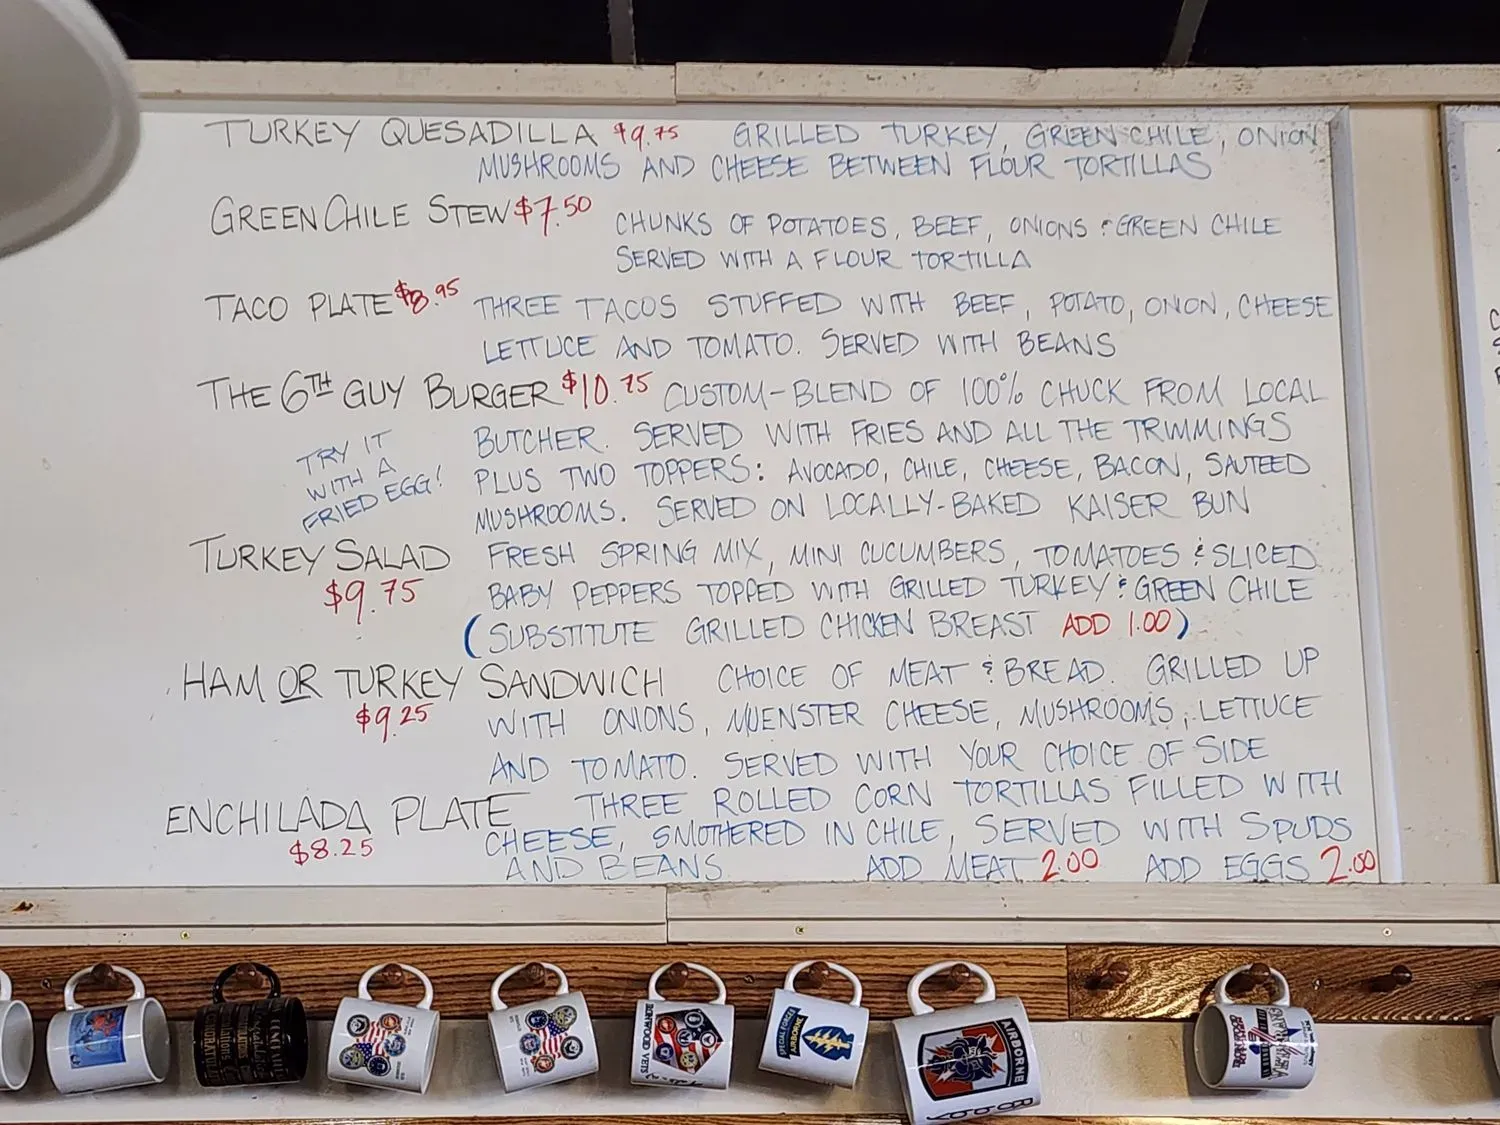 TURKEY QUESADILLA $9.75 GRILLED TURKEY, GREEN CHILE, ONION
MUSHROOMS AND CHEESE BETWEEN FLOUR TORTILLAS
GREEN CHILE STEW $7.50 CHUNKS OF POTATOES, BEEF, ONIONS & GREEN CHILE
SERVED WITH A FLOUR TORTILLA
TACO PLATE $8.95 THREE TACOS STUFFED WITH BEEF, POTATO, ONION, CHEESE
LETTUCE AND TOMATO. SERVED WITH BEANS
THE 6TH GUY BURGER $10.75 CUSTOM-BLEND OF 100% CHUCK FROM LOCAL
BUTCHER. SERVED WITH FRIES AND ALL THE TRIMMINGS
PLUS TWO TOPPERS: AVOCADO, CHILE, CHEESE, BACON, SAUTEED
MUSHROOMS. SERVED ON LOCALLY-BAKED KAISER BUN
TRY IT
WITH A
FRIED EGG!
TURKEY SALAD FRESH SPRING MIX, MINI CUCUMBERS, TOMATOES & SLICED
$9.75 BABY PEPPERS TOPPED WITH GRILLED TURKEY & GREEN CHILE
(SUBSTITUTE GRILLED CHICKEN BREAST ADD 1.00)
HAM OR TURKEY SANDWICH CHOICE OF MEAT & BREAD. GRILLED UP
$9.25 WITH ONIONS, MUENSTER CHEESE, MUSHROOMS, LETTUCE
AND TOMATO. SERVED WITH YOUR CHOICE OF SIDE
ENCHILADA PLATE THREE ROLLED CORN TORTILLAS FILLED WITH
$8.25 CHEESE, SMOTHERED IN CHILE, SERVED WITH SPUDS
AND BEANS ADD MEAT 2.00 ADD EGGS 2.00
IRONWOOD VETS
SPECIAL FORCES
AIRBORNE
AIRBORNE